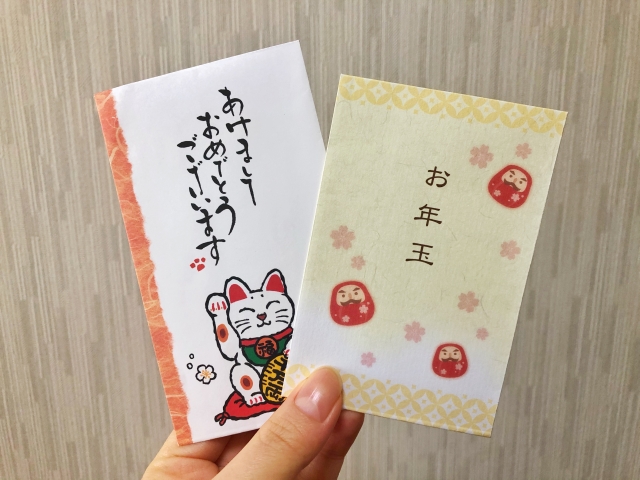 あけまして
おめでとう
ございます
福
お年玉